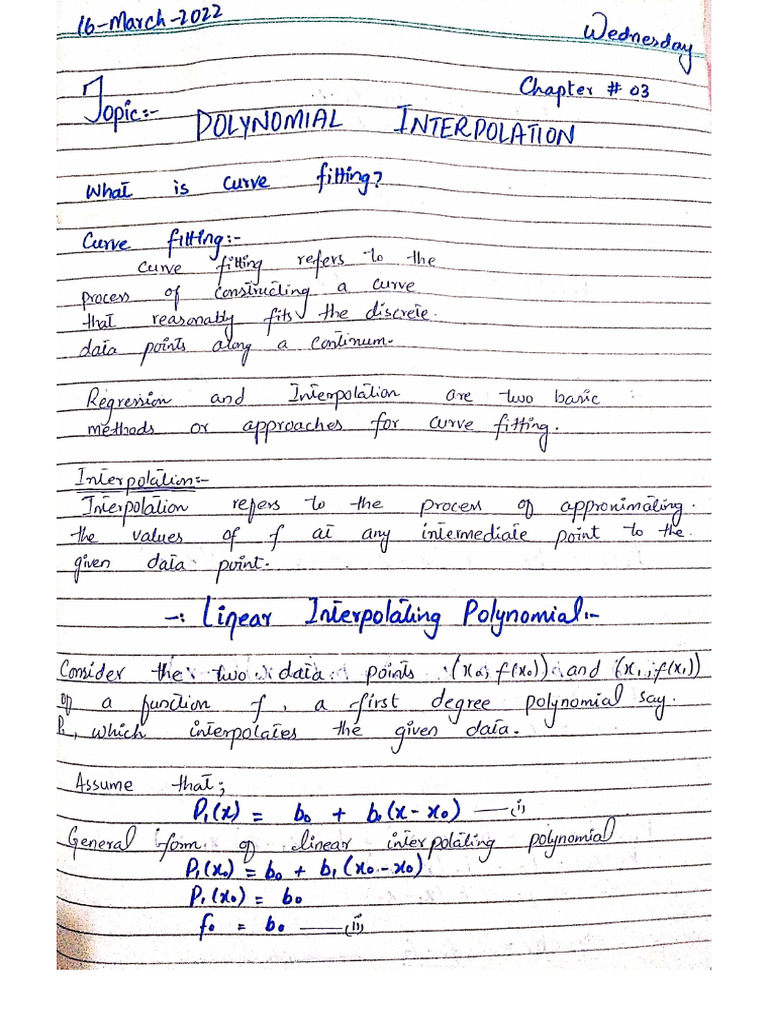 16-March-2022
Wednesday
Chapter # 03
Topic:- POLYNOMIAL INTERPOLATION
What is curve fitting?
Curve fitting:-
Curve fitting refers to the
process of constructing a curve
that reasonably fits the discrete.
data points along a continum.
Regression and Interpolation are two basic
methods or approaches for curve fitting.
Interpolation:-
Interpolation refers to the process of approximating.
the values of f at any intermediate point to the.
given data point.
-: Linear Interpolating Polynomial:-
Consider the two data points (x₀, f(x₀)) and (x₁, f(x₁))
of a function f, a first degree polynomial say.
P₁, which interpolates the given data.
Assume that;
P₁(x) = b₀ + b₁(x - x₀) —(i)
General form of linear interpolating polynomial
P₁(x₀) = b₀ + b₁(x₀ - x₀)
P₁(x₀) = b₀
f₀ = b₀ —(ii)